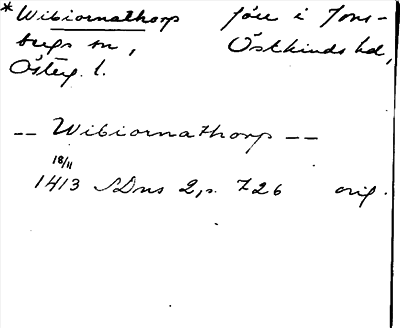 *Wibiornathorp förr i Jons-
bergs sn, Östkinds hd,
Österg. l.
-- Wibiornathorp --
18/11
1413 SDns 2, s. 726 orig.